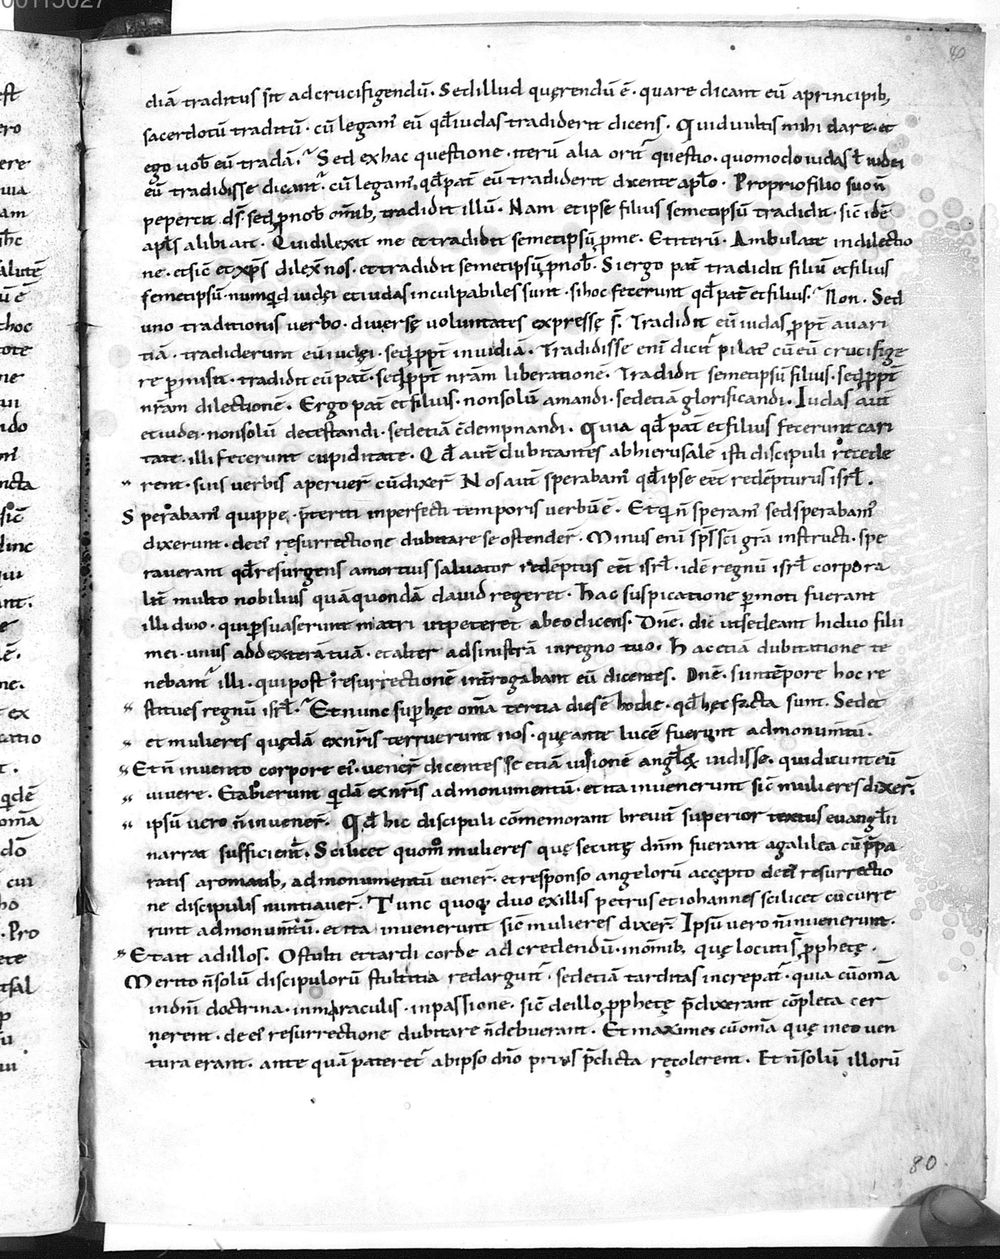 00115027
80
diā traditus sit ad crucifigendū. Sed illud quęrendū ē. quare dicant eū a principib;
sacerdotū traditū. cū legamꝰ eū qđ iudas tradiderit dicens. Quid uultis mihi dare. et
ego uob̄ eū tradā. Sed ex hac questione. iterū alia oritᷣ questio. quomodo iudas ł iudei
eū tradidisse dicantᷣ. cū legamꝰ, qđ pat̄ eū tradiderit dicente apło. Proprio filio suo n̄
pepercit ds̄. sed ꝓ nob̄ omib; tradidit illū. Nam et ipse filius semetipsū tradidit. sic̄ idē
apłs alibi ait. Qui dilexit me et tradidit semetipsū ꝓ me. Et iterū. Ambulate in dilectio
ne. et sic̄ et xp̄s dilex̄ nos. et tradidit semetipsū ꝓ nob̄. Si ergo pat̄ tradidit filiū et filius
semetipsū. numqid iudęi et iudas inculpabiles sunt. si hoc fecerunt qđ pat̄ et filius. Non. Sed
uno traditionis uerbo. diuersę uoluntates expressę s̄. Tradidit eū iudas ꝓpt̄ auari
tiā. tradiderunt eū iudęi. sed ꝓpt̄ inuidiā. Tradidisse enī dicitᷣ pilatꝰ cū eū crucifige
re ꝑmisit. tradidit eū pat̄. sed ꝓpt̄ nr̄am liberationē. Tradidit semetipsū filius. sed ꝓpt̄
nr̄am dilectionē. Ergo pat̄ et filius. non solū amandi. sed etiā glorificandi. Iudas aut̄
et iudei. non solū detestandi. sed etiā c̄dempnandi. Quia qđ pat̄ et filius fecerunt cari
tate. illi fecerunt cupiditate. Qđ aut̄ dubitantes ab hierusalē isti discipuli recede
rent. suis uerbis aperuer̄ cū dixer̄. Nos aut̄ sperabamꝰ qđ ipse eēt redēpturus isrł.
Sperabamꝰ quippe. p̄teriti inperfecti temporis uerbū ē. Et q̨ n̄ speramꝰ sed sperabamꝰ
dixerunt. de eiꝰ resurrectione dubitare se ostender̄. Minus enī sp̄s sc̄i gr̄a instructi. spe
rauerant qđ resurgens a mortuis saluator redēptus eēt isrł. idē regnū isrł corpora
lit̄ multo nobilius quā quondā dauid regeret. Hac suspicatione ꝑmoti fuerant
illi duo. qui ꝑsuaserunt matri ut peteret ab eo dicens. Dn̄e. dic ut sedeant hi duo filii
mei. unus ad dexterā tuā. et alter ad sinistrā in regno tuo. Hac etiā dubitatione te
nebantᷣ illi. qui post resurrectionē int̄rogabant eū dicentes. Dn̄e. si in tēpore hoc re
stitues regnū isrł. Et nunc sup̄ hęc om̄a tertia dies ē hodie. qđ hęc facta sunt. Sed et
et mulieres quędā ex nr̄is terruerunt nos. quę ante lucē fuerunt ad monumtū.
Et n̄ inuento corpore eiꝰ. uener̄ dicentes se etiā uisionē angłoꝝ uidisse. qui dicunt eū
uiuere. Et abierunt qidā ex nr̄is ad monumentū. et ita inuenerunt sic̄ mulieres dixer̄.
ipsū uero n̄ inuener̄. Qđ hic discipuli cōmemorant breuit̄ superior textus euangłii
narrat sufficient̄. Scilicet quom̊ mulieres quę secutę dn̄m fuerant a galilea cū p̄pa
ratis aromatib; ad monumentū uener̄. et responso angelorū accepto de eiꝰ resurrectio
ne discipulis nuntiauer̄. Tunc quoq; duo ex illis petrus et iohannes scilicet cūcurre
runt ad monumtū. et ita inuenerunt sic̄ mulieres dixer̄. Ipsū uero n̄ inuenerunt.
Et ait ad illos. O stulti et tardi corde ad credendū. in om̄ib; quę locuti s̄ ꝓphetę.
Merito n̄ solū discipulorū stultitia redarguitᷣ. sed etiā tarditas increpatᷣ. quia cū om̄a
in dn̄i doctrina. in miraculis. in passione. sic̄ de illo ꝓphetę p̄dixerant cōpleta cer
nerent. de eiꝰ resurrectione dubitare n̄ debuerant. Et maxime cū om̄a quę in eo uen
tura erant. ante quā pateretᷣ ab ipso dn̄o priꝰ p̄dicta recolerent. Et n̄ solū illorū
80